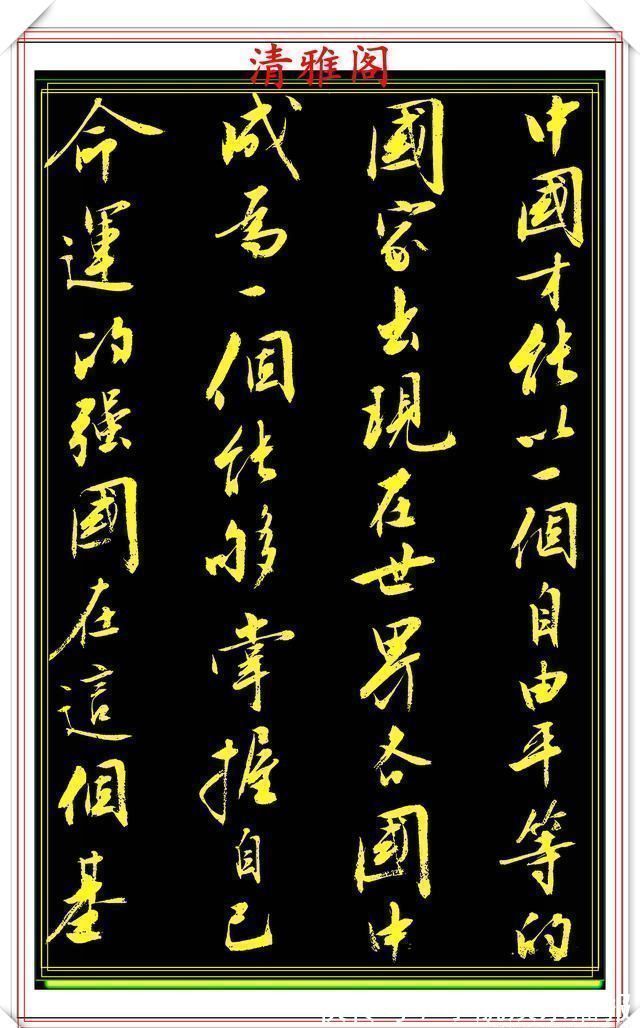 清雅阁
中國才能以一個自由平等的
國家出現在世界各國中
成為一個能够掌握自己
命運的强國在這個基